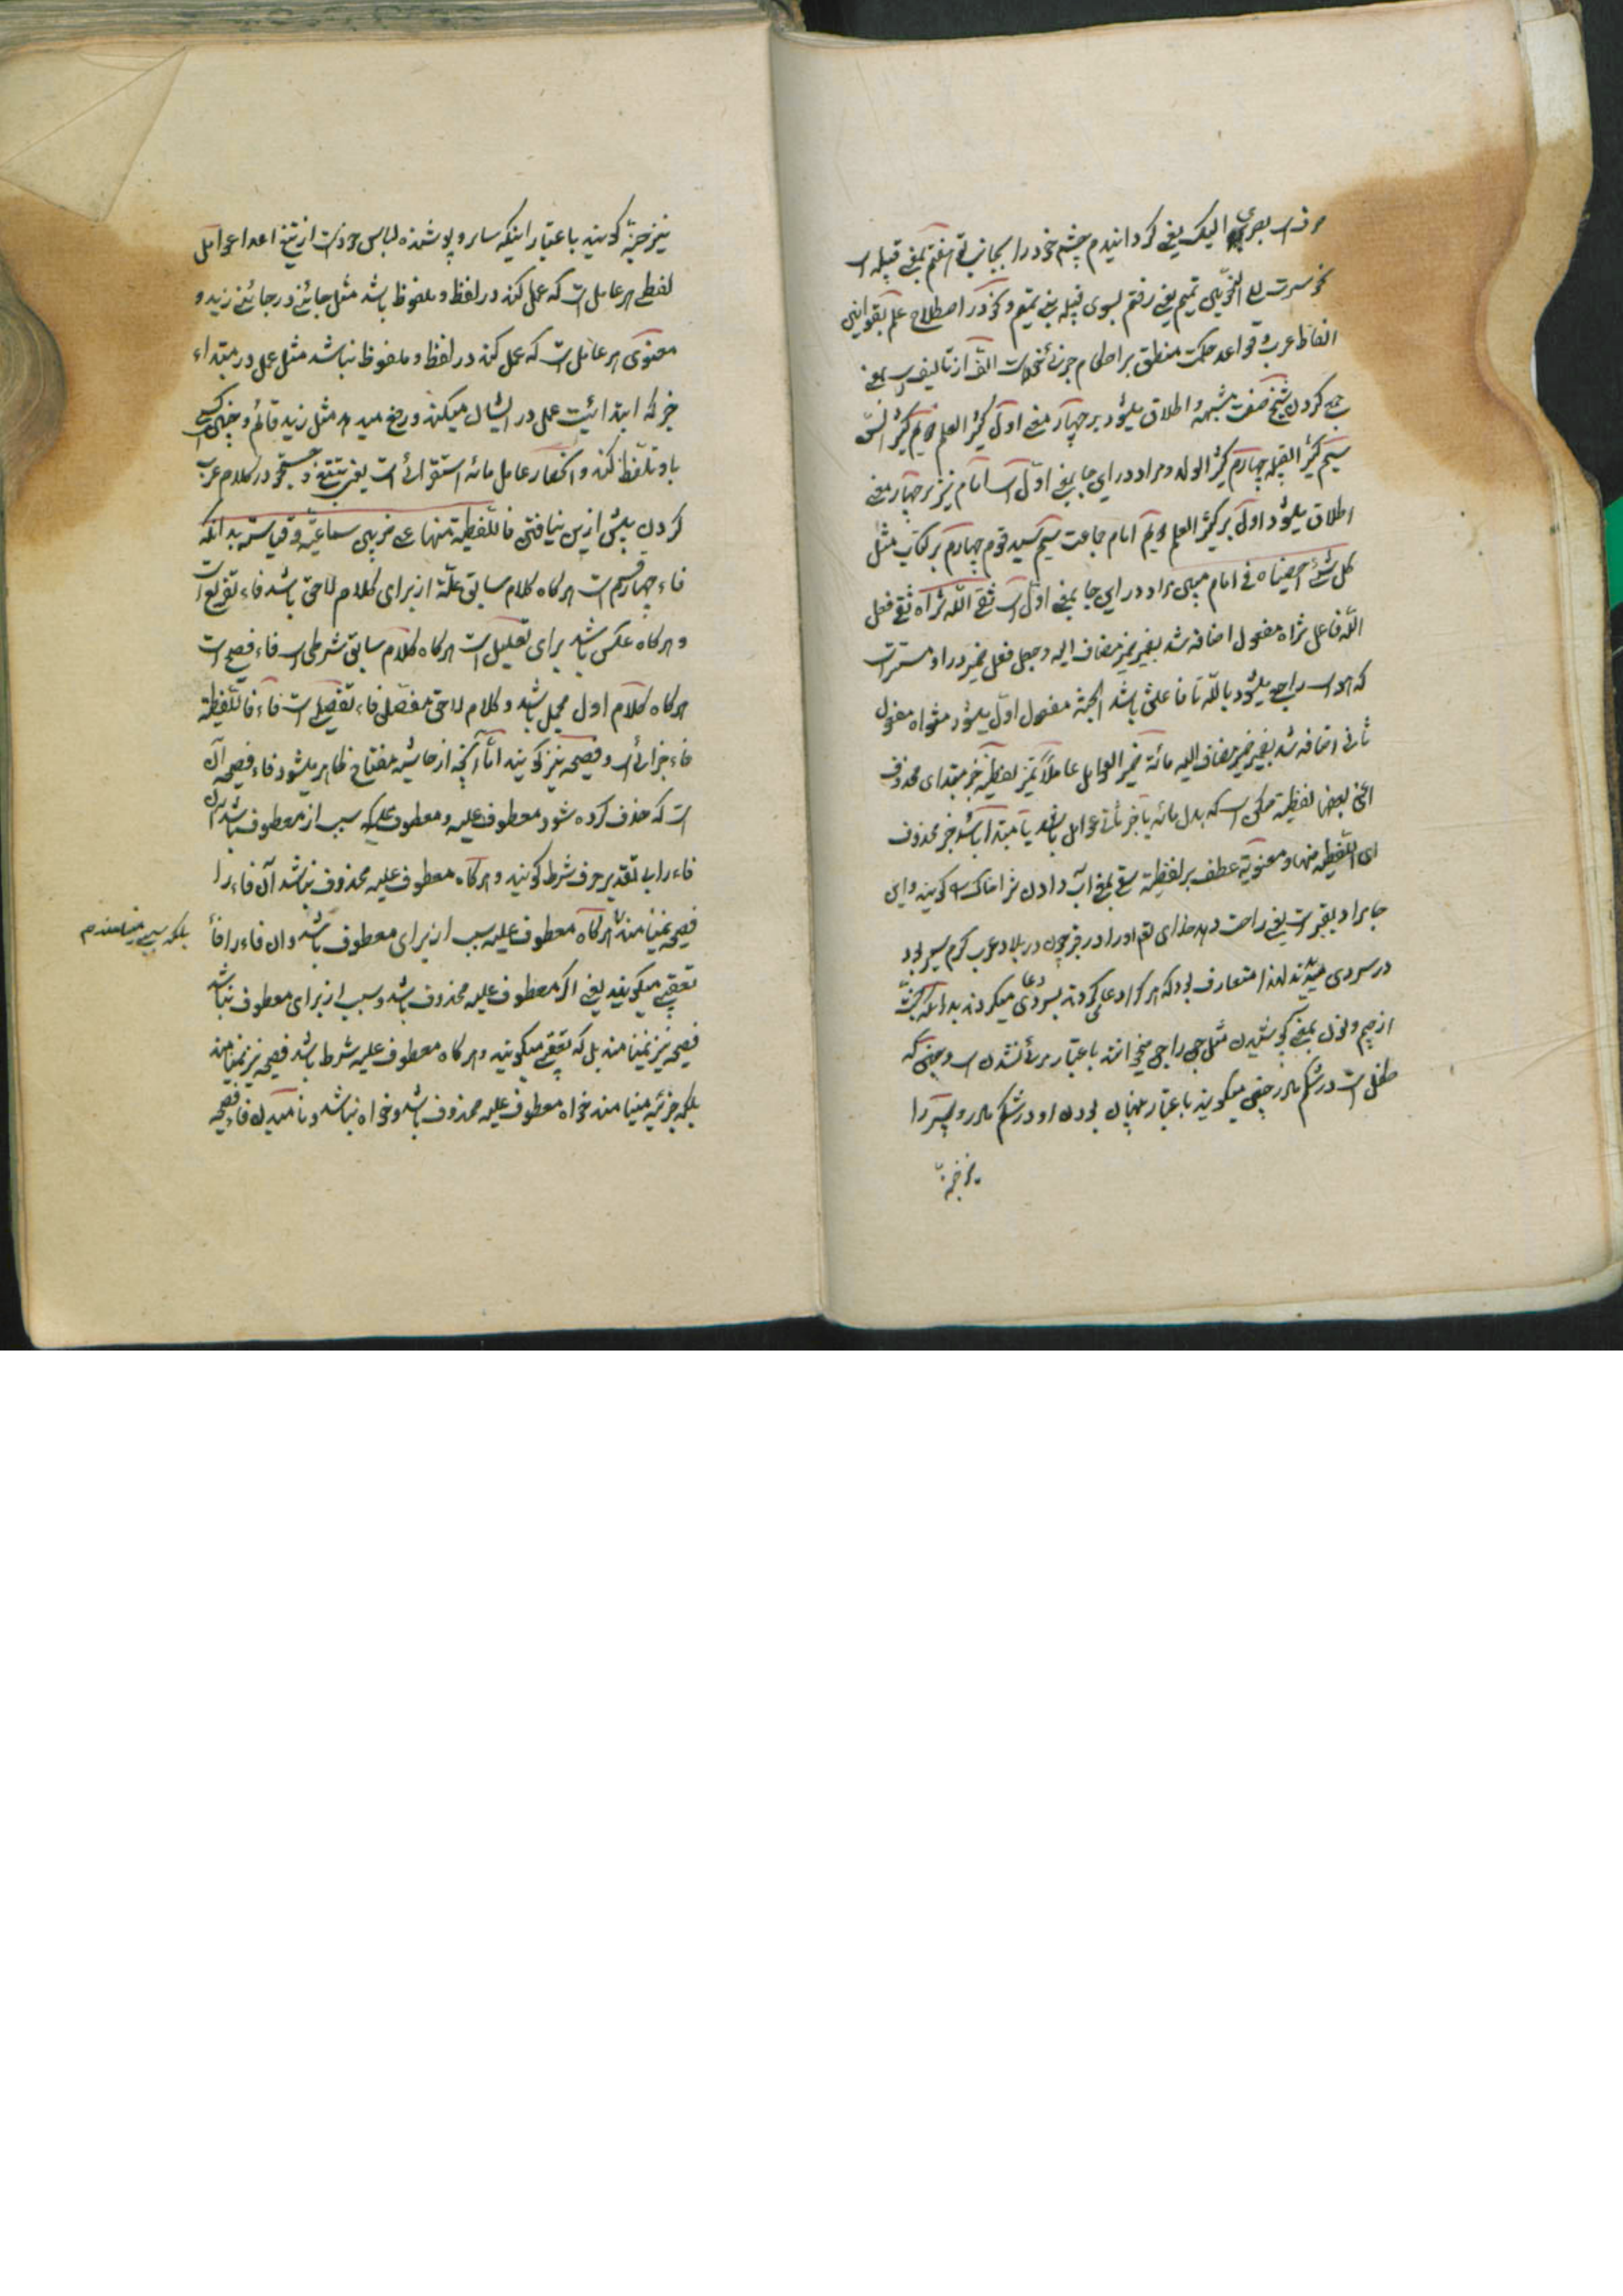 صرفت بصری الیک یعنی گردانیدم چشم خود را بجانب تو هفتم بمعنی قبیله است
نحو سرت الی النحو بنی تمیم یعنی رفتم بسوی قبیله بنی تمیم و نحو در اصطلاح علم بقوانین
الفاظ عرب و قواعد حکمت منطق بر احکام جزئی نحو است الف از تالیف است بمعنی
جمع کردن شیخ صفت مشبهه و اطلاق میشود بر چهار معنی اول کثیر العلم دویم کثیر السن
سیم کثیر القبیله چهارم کثیر الولد و مراد در این جا بمعنی اول است امام نیز بر چهار معنی
اطلاق میشود اول بر کثیر العلم دویم امام جماعت سیم سید قوم چهارم بر کتاب مثل
کل شیء احصیناه فی امام مبین مراد در این جا بمعنی اول است سقی الله ثراه سقی فعل
الله فاعل ثراه مفعول اضافه شد بضمیر ضمیر مضاف الیه و جعل فعل ضمیر در او مستتر است
که هو است راجع میشود بالله تا فاعلش باشد الجنة مفعول اول میشود مثواه مفعول
ثانی اضافه شد بضمیر ضمیر مضاف الیه مائة خبر العوامل عاملاً تمیز لفظیة خبر مبتدای محذوف
اعنی بعضها لفظیة ممکن است که بدل مائه یا خبر ثانی عوامل باشد یا مبتدا باشد خبر محذوف
ای اللفظیة منها و معنویة عطف بر لفظیة سقی بمعنی آب دادن ثرا خاک را گویند و این
جا مراد بقبر است یعنی راحت دهد خدای تعالی او را در قبر چون در بلاد عرب گرم سیر بود
در سردی میبودند لهذا متعارف بود که هر کرا دعا میکردند بسردی دعا میکردند بدانکه جنة
از جیم و نون بمعنی پوشیدن مثل جن را جن میخوانند باعتبار مرئی نشدن است و جنین که
طفل است در شکم مادر جنین میگویند باعتبار پنهان بودن او در شکم مادر و سپر را
نیز جنة
نیز جنة گویند باعتبار اینکه ساتر و پوشنده لباس خود است از تیغ اعدا عوامل
لفظی هر عاملی است که عمل کند در لفظ و ملفوظ باشد مثل جائنی در جائنی زید و
معنوی هر عاملی است که عمل کند در لفظ و ملفوظ نباشد مثل عمل در مبتداء
خبر که ابتدائیت عمل در ایشان میکند و رفع میدهد مثل زید قائم و خفی کسی
باو تلفظ کند و انحصار عامل مائه استقرائی است یعنی تتبع و جستجو در کلام عرب
کردن بیش ازین نیافتن فاللفظیة منها علی ضربین سماعیة و قیاسیة بدانکه
فاء چهار قسم است هر گاه کلام سابق علة از برای کلام لاحق باشد فاء تفریع است
و هر گاه عکس باشد برای تعلیل است هر گاه کلام سابق شرطی است فاء فصیح است
هر گاه کلام اول مجمل باشد و کلام لاحق مفصل فاء تفصیل است فاء فاللفظیة
فاء جزائی است و فصیحه نیز گویند اما آنچه از حاشیه مفتاح ظاهر میشود فاء فصیحه آن
است که حذف کرده شود معطوف علیه و معطوف علیه سبب از معطوف باشد بدون
فاء را بتقدیر حرف شرط گویند و هر گاه معطوف علیه محذوف نباشد آن فاء را
فصیحه نمینامند هر گاه معطوف علیه سبب از برای معطوف باشد و آن فاء را فاء
بلکه سببی مینامند م
تعقیب میگویند یعنی اگر معطوف علیه محذوف باشد و سبب از برای معطوف نباشد
فصیحه نیز نمینامند بل که تعقیب میگویند و هر گاه معطوف علیه شرط باشد فصیحه نیز نمینامند
بلکه جزئیه مینامند خواه معطوف علیه محذوف باشد و خواه نباشد و نامیدن فاء فصیحه